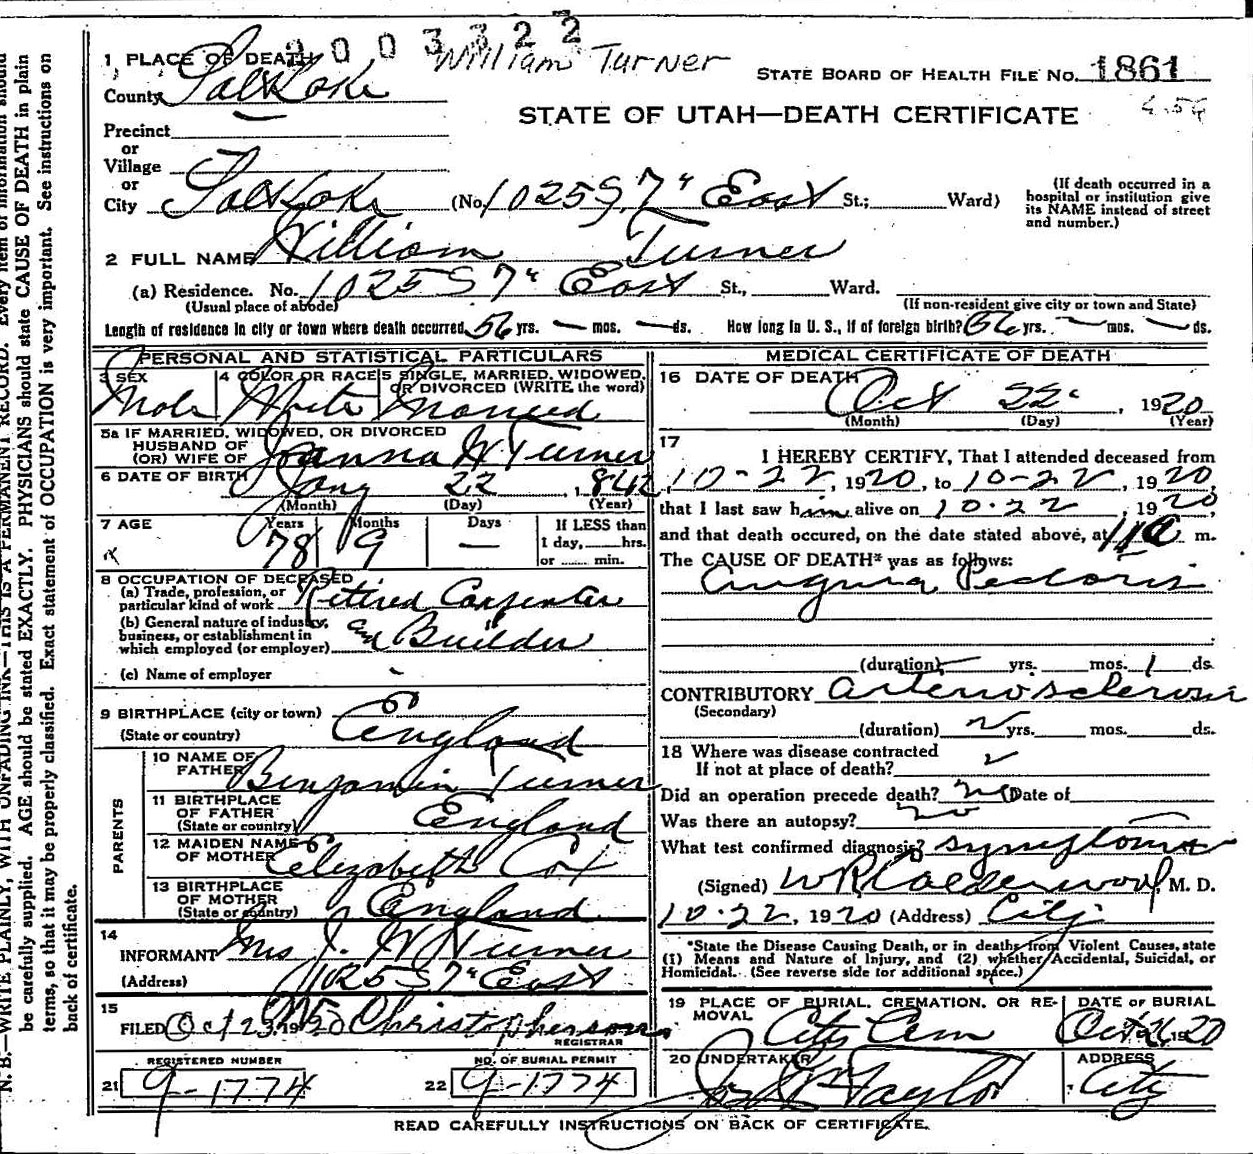 2003322
William Turner
1 PLACE OF DEATH
STATE BOARD OF HEALTH FILE NO. 1861
County Salt Lake
STATE OF UTAH—DEATH CERTIFICATE
Precinct
or
Village
or
City Salt Lake (No. 1025 S 7" East St.; Ward)
(If death occurred in a hospital or institution give its NAME instead of street and number.)
2 FULL NAME William Turner
(a) Residence. No. 1025 S 7" East St., Ward.
(Usual place of abode) (If non-resident give city or town and State)
Length of residence in city or town where death occurred 56 yrs. — mos. — ds. How long in U. S., if of foreign birth? 56 yrs. — mos. — ds.
PERSONAL AND STATISTICAL PARTICULARS
3 SEX Male
4 COLOR OR RACE White
5 SINGLE, MARRIED, WIDOWED, OR DIVORCED (WRITE the word) Married
5a IF MARRIED, WIDOWED, OR DIVORCED
HUSBAND OF
(OR) WIFE OF Joanna H Turner
6 DATE OF BIRTH Jany 22, 1842
(Month) (Day) (Year)
7 AGE Years 78 Months 9 Days —
If LESS than
1 day, hrs.
or min.
8 OCCUPATION OF DECEASED
(a) Trade, profession, or
particular kind of work Retired Carpenter
(b) General nature of industry,
business, or establishment in
which employed (or employer) and Builder
(c) Name of employer -
9 BIRTHPLACE (city or town)
(State or country) England
PARENTS
10 NAME OF
FATHER Benjamin Turner
11 BIRTHPLACE
OF FATHER
(State or country) England
12 MAIDEN NAME
OF MOTHER Elizabeth Cox
13 BIRTHPLACE
OF MOTHER
(State or country) England
14
INFORMANT Mrs J. H Turner
(Address) 1025 S 7" East
15
FILED Oct 23 1920 Christopherson
REGISTRAR
REGISTERED NUMBER
21 9-1774
NO. OF BURIAL PERMIT
22 9-1774
MEDICAL CERTIFICATE OF DEATH
16 DATE OF DEATH Oct 22, 1920
(Month) (Day) (Year)
17
I HEREBY CERTIFY, That I attended deceased from
10-22, 1920, to 10-22, 1920,
that I last saw him alive on 10-22, 1920,
and that death occured, on the date stated above, at 11 a m.
The CAUSE OF DEATH* was as follows:
Angina Pectoris
(duration) — yrs. mos. 1 ds.
CONTRIBUTORY arteriosclerosis
(Secondary)
(duration) yrs. mos. ds.
18 Where was disease contracted
If not at place of death?
Did an operation precede death? no Date of
Was there an autopsy? no
What test confirmed diagnosis? symptoms
(Signed) W R Calderwood, M. D.
10-22, 1920 (Address) City
*State the Disease Causing Death, or in deaths from Violent Causes, state
(1) Means and Nature of Injury, and (2) whether Accidental, Suicidal, or
Homicidal. (See reverse side for additional space.)
19 PLACE OF BURIAL, CREMATION, OR REMOVAL City Cem
DATE OF BURIAL Oct 26, 1920
20 UNDERTAKER Jos Wm Taylor
ADDRESS City
READ CAREFULLY INSTRUCTIONS ON BACK OF CERTIFICATE.
N. B.—WRITE PLAINLY, WITH UNFADING INK—THIS IS A PERMANENT RECORD. Every item of information should
be carefully supplied. AGE should be stated EXACTLY. PHYSICIANS should state CAUSE OF DEATH in plain
terms, so that it may be properly classified. Exact statement of OCCUPATION is very important. See instructions on
back of certificate.